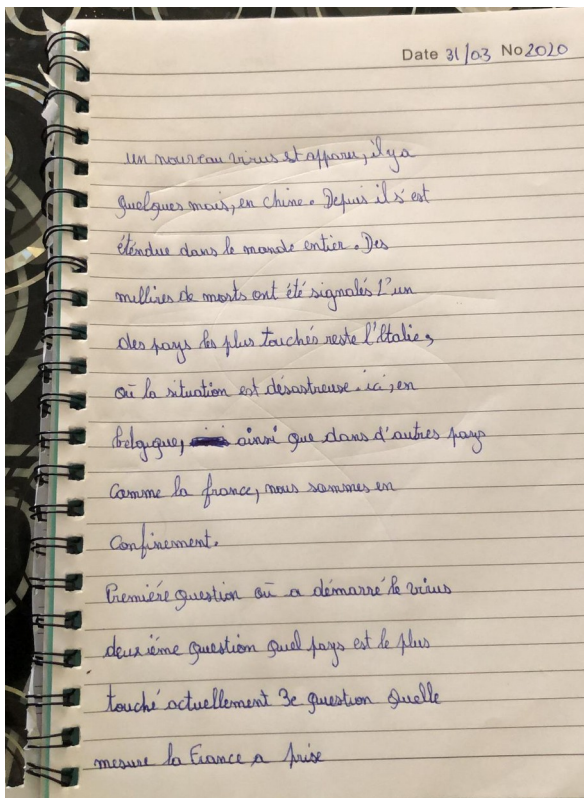 Date 31/03 No 2020
un nouveau virus est apparu, il y a
quelques mois, en chine. Depuis il s'est
éténdue dans le monde entier. Des
millires de morts ont été signalés L'un
des pays les plus touchés reste l'Italie,
où la situation est désastreuse. ici, en
belgique, ainsi que dans d'autres pays
comme la france, nous sommes en
confinement.
Première question où a démarré le virus
deuxième question quel pays est le plus
touché actuellement 3e question quelle
mesure la France a prise